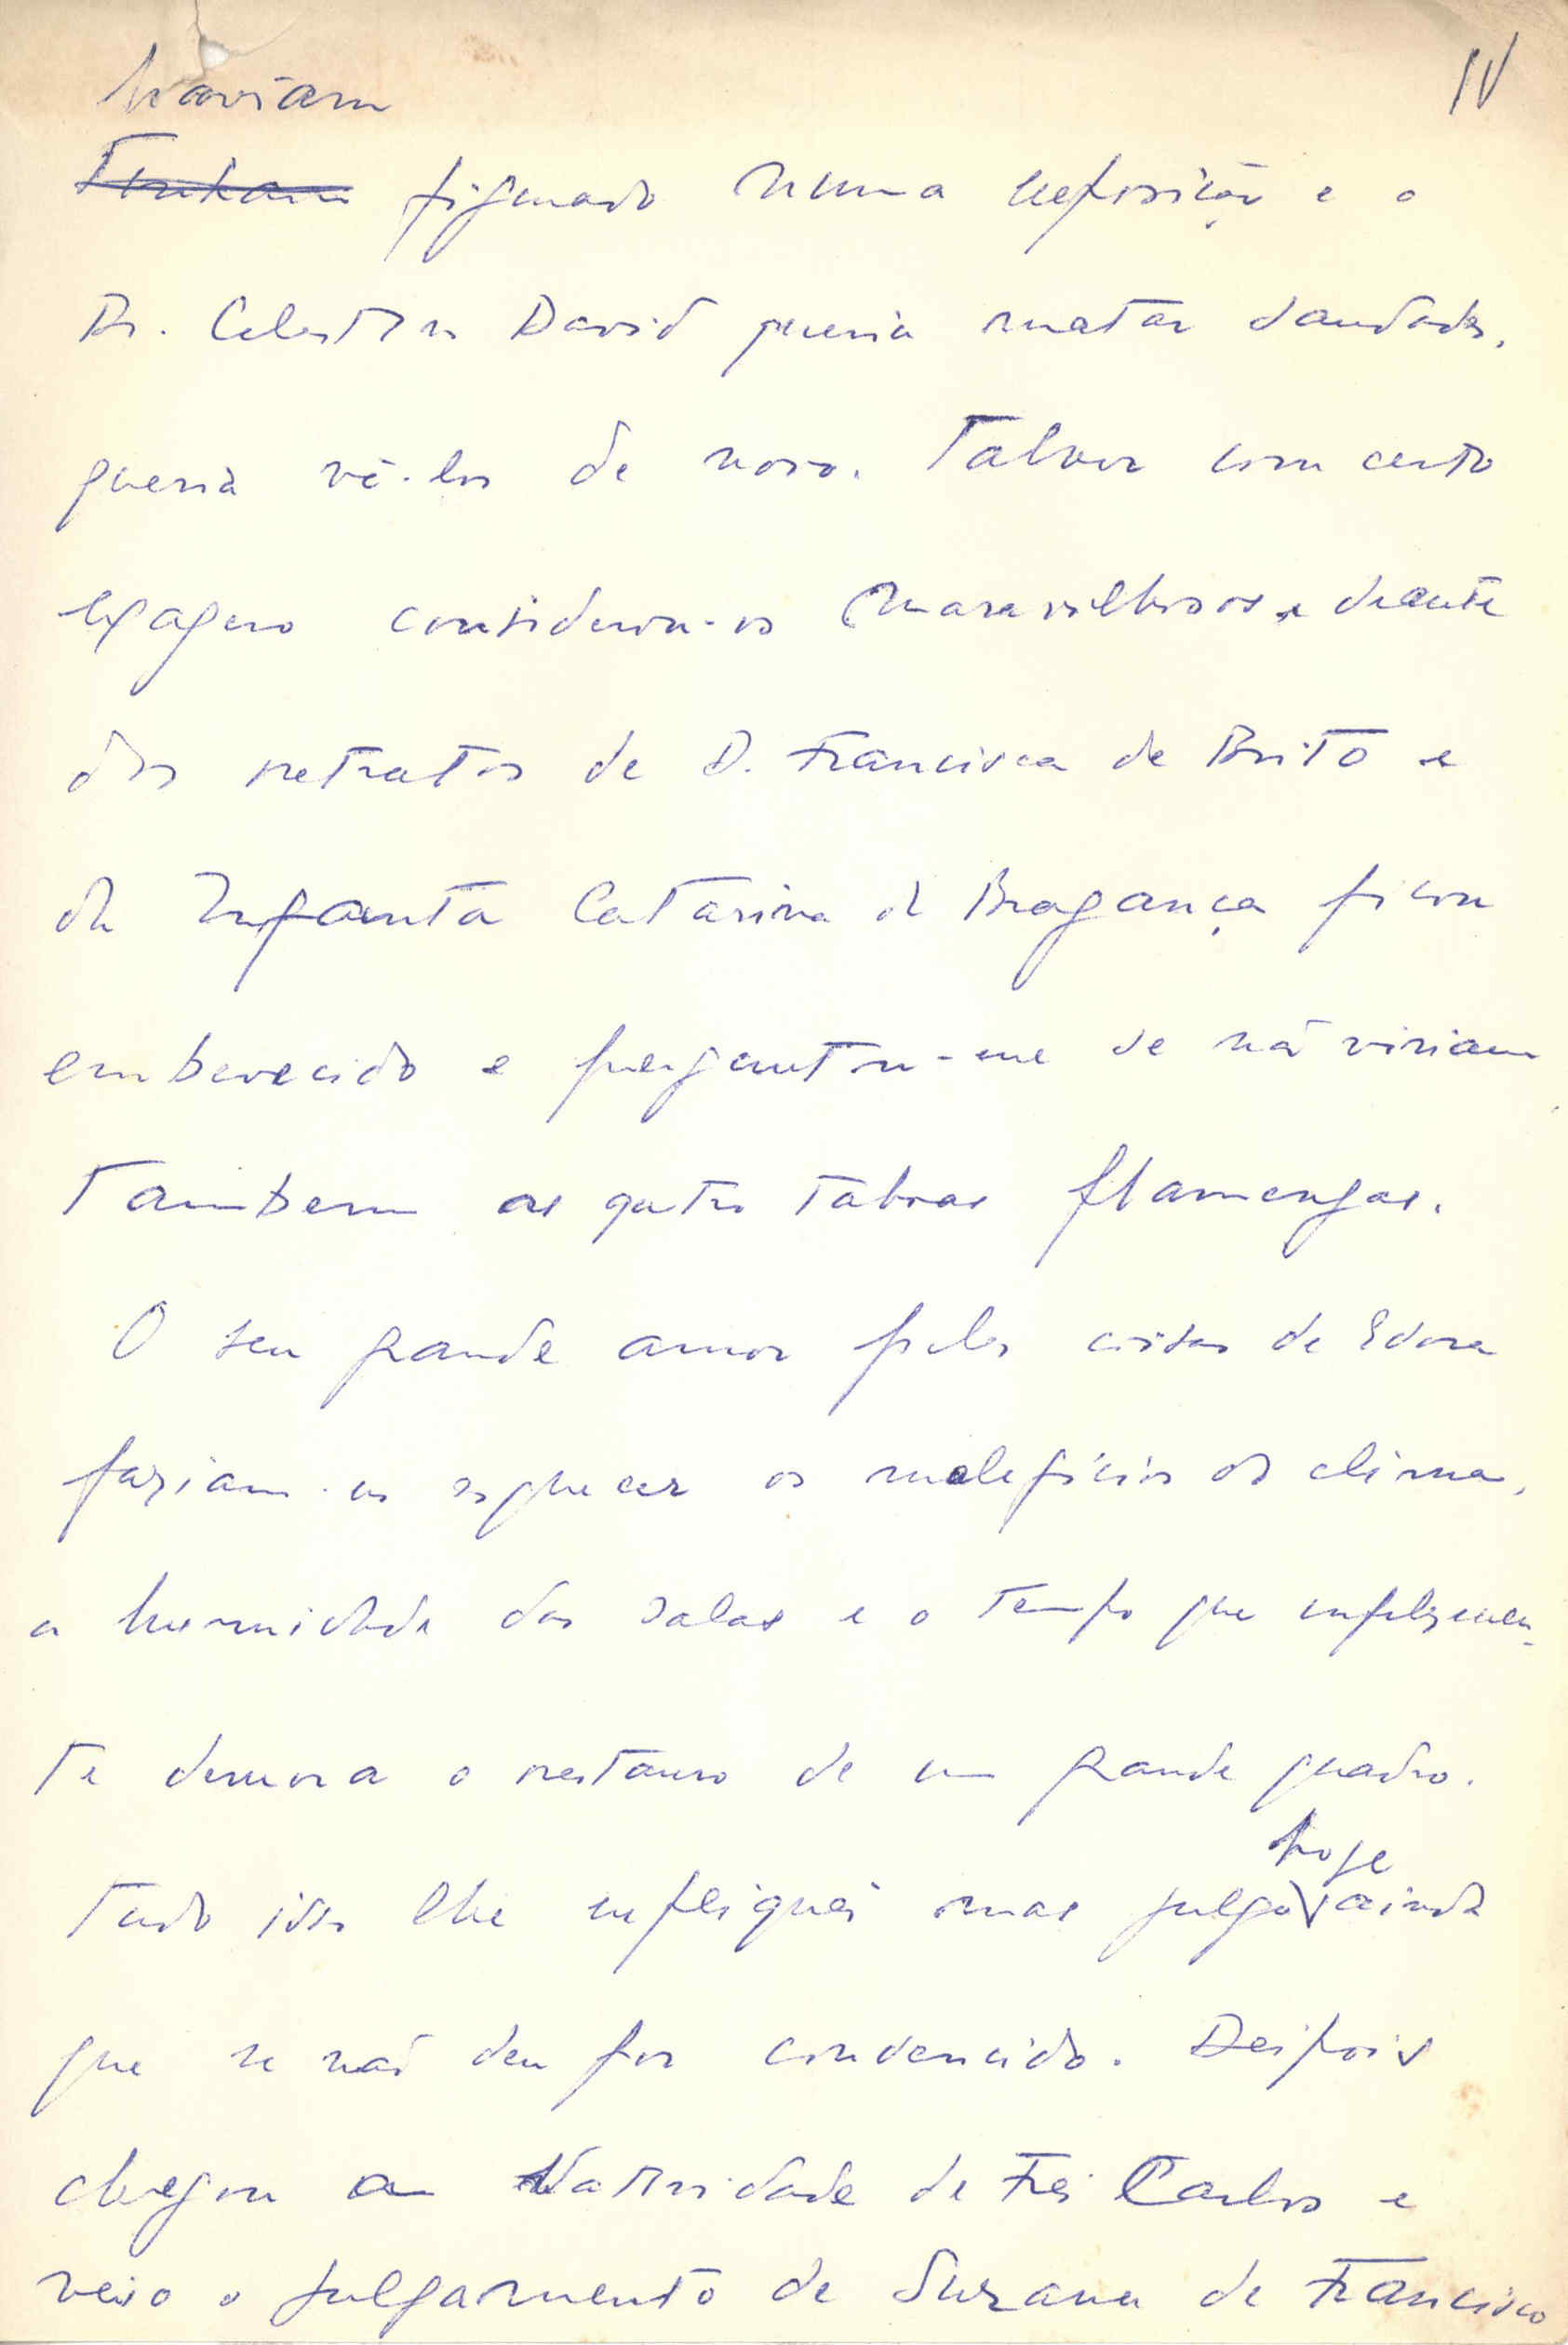 IV
haviam
Tinham figurado numa exposição e o
Dr. Celestino David queria matar saudades,
queria vê-los de novo. Talvez com certo
exagero considerou-os maravilhosos e deante
dos retratos de D. Francisca de Brito e
da Infanta Catarina de Bragança ficou
embevecido e perguntou-me se não viriam
tambem as quatro tabuas flamengas.
O seu grande amor pelas coisas de Evora
faziam-no esquecer os maleficios do clima,
a humidade das salas e o tempo que infelizmen-
te demora o restauro de um grande quadro.
hoje
Tudo isso lhe expliquei mas julgo ainda
que se não deu por convencido. Depois
chegou a Natividade de Frei Carlos e
veio o julgamento de Suzana de Francisco